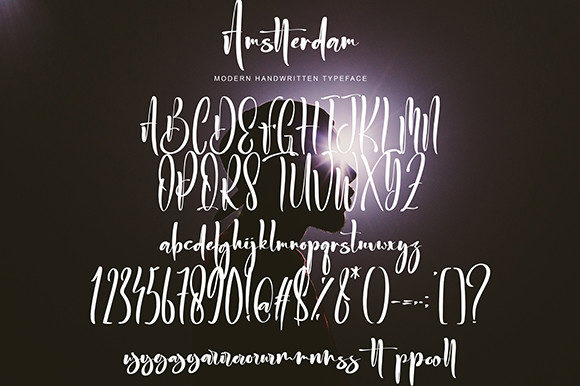 Amstterdam
MODERN HANDWRITTEN TYPEFACE
ABCDEFGHIJKLMN
OPQRSTUVWXYZ
abcdefghijklmnopqrstuvwxyz
1234567890!@#$%&*()-=-:;[]?
tt ppooll